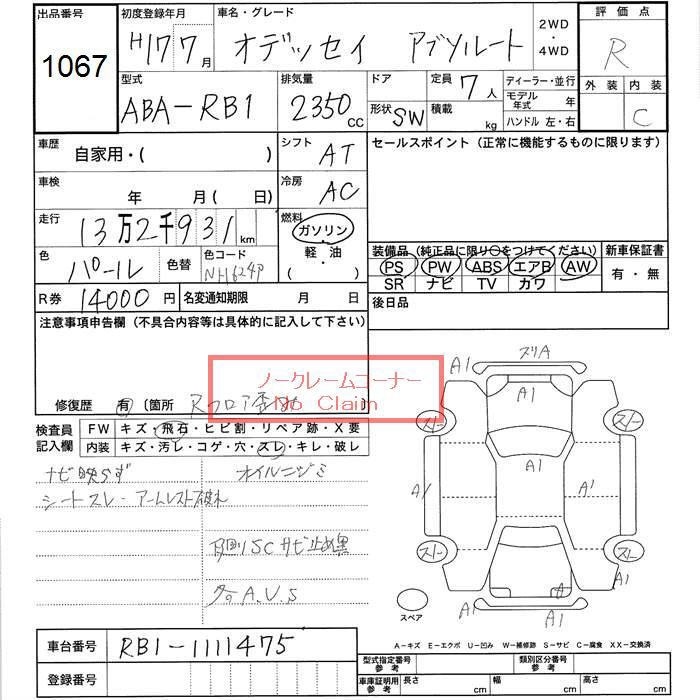 出品番号
1067
初度登録年月
H17 7月
車名・グレード
オデッセイ アブソルート
2WD
・
4WD
評価点
R
外装 内装
C
型式
ABA-RB1
排気量
2350cc
ドア
形状 SW
定員 7人
積載 kg
ディーラー・並行
モデル年式 年
ハンドル 左・右
車歴
自家用・( )
シフト
AT
車検
年 月( 日)
冷房
AC
走行
13万2千931km
燃料
ガソリン
・
軽・油
( )
色
パール
色替
色コード
NH624P
R券 14000円
名変通知期限 月 日
セールスポイント(正常に機能するものに限ります)
装備品(純正品に限り○をつけてください)
PS PW ABS エアB AW
SR ナビ TV カワ
新車保証書
有・無
後日品
注意事項申告欄(不具合内容等は具体的に記入して下さい)
ノークレームコーナー
No Claim
修復歴 有(箇所 Rフロア
検査員記入欄
FW キズ・飛石・ヒビ割・リペア跡・X要
内装 キズ・汚レ・コゲ・穴・スレ・キレ・破レ
ナビ映らず
オイルニジミ
シートスレ・アームレスト破れ
下回りSCサビ止め黒
A.V.S
A1 スリA A1
A1
スレ スレ
A1
A1 A' A1
スレ スレ
A1 A A1
A1 A1
スペア
A-キズ E-エクボ U-凹み W-補修跡 S-サビ C-腐食 XX-交換済
車台番号 RB1-1111475
登録番号
型式指定番号参考
類別区分番号参考
車庫証明用参考 長さ cm 幅 cm 高さ cm